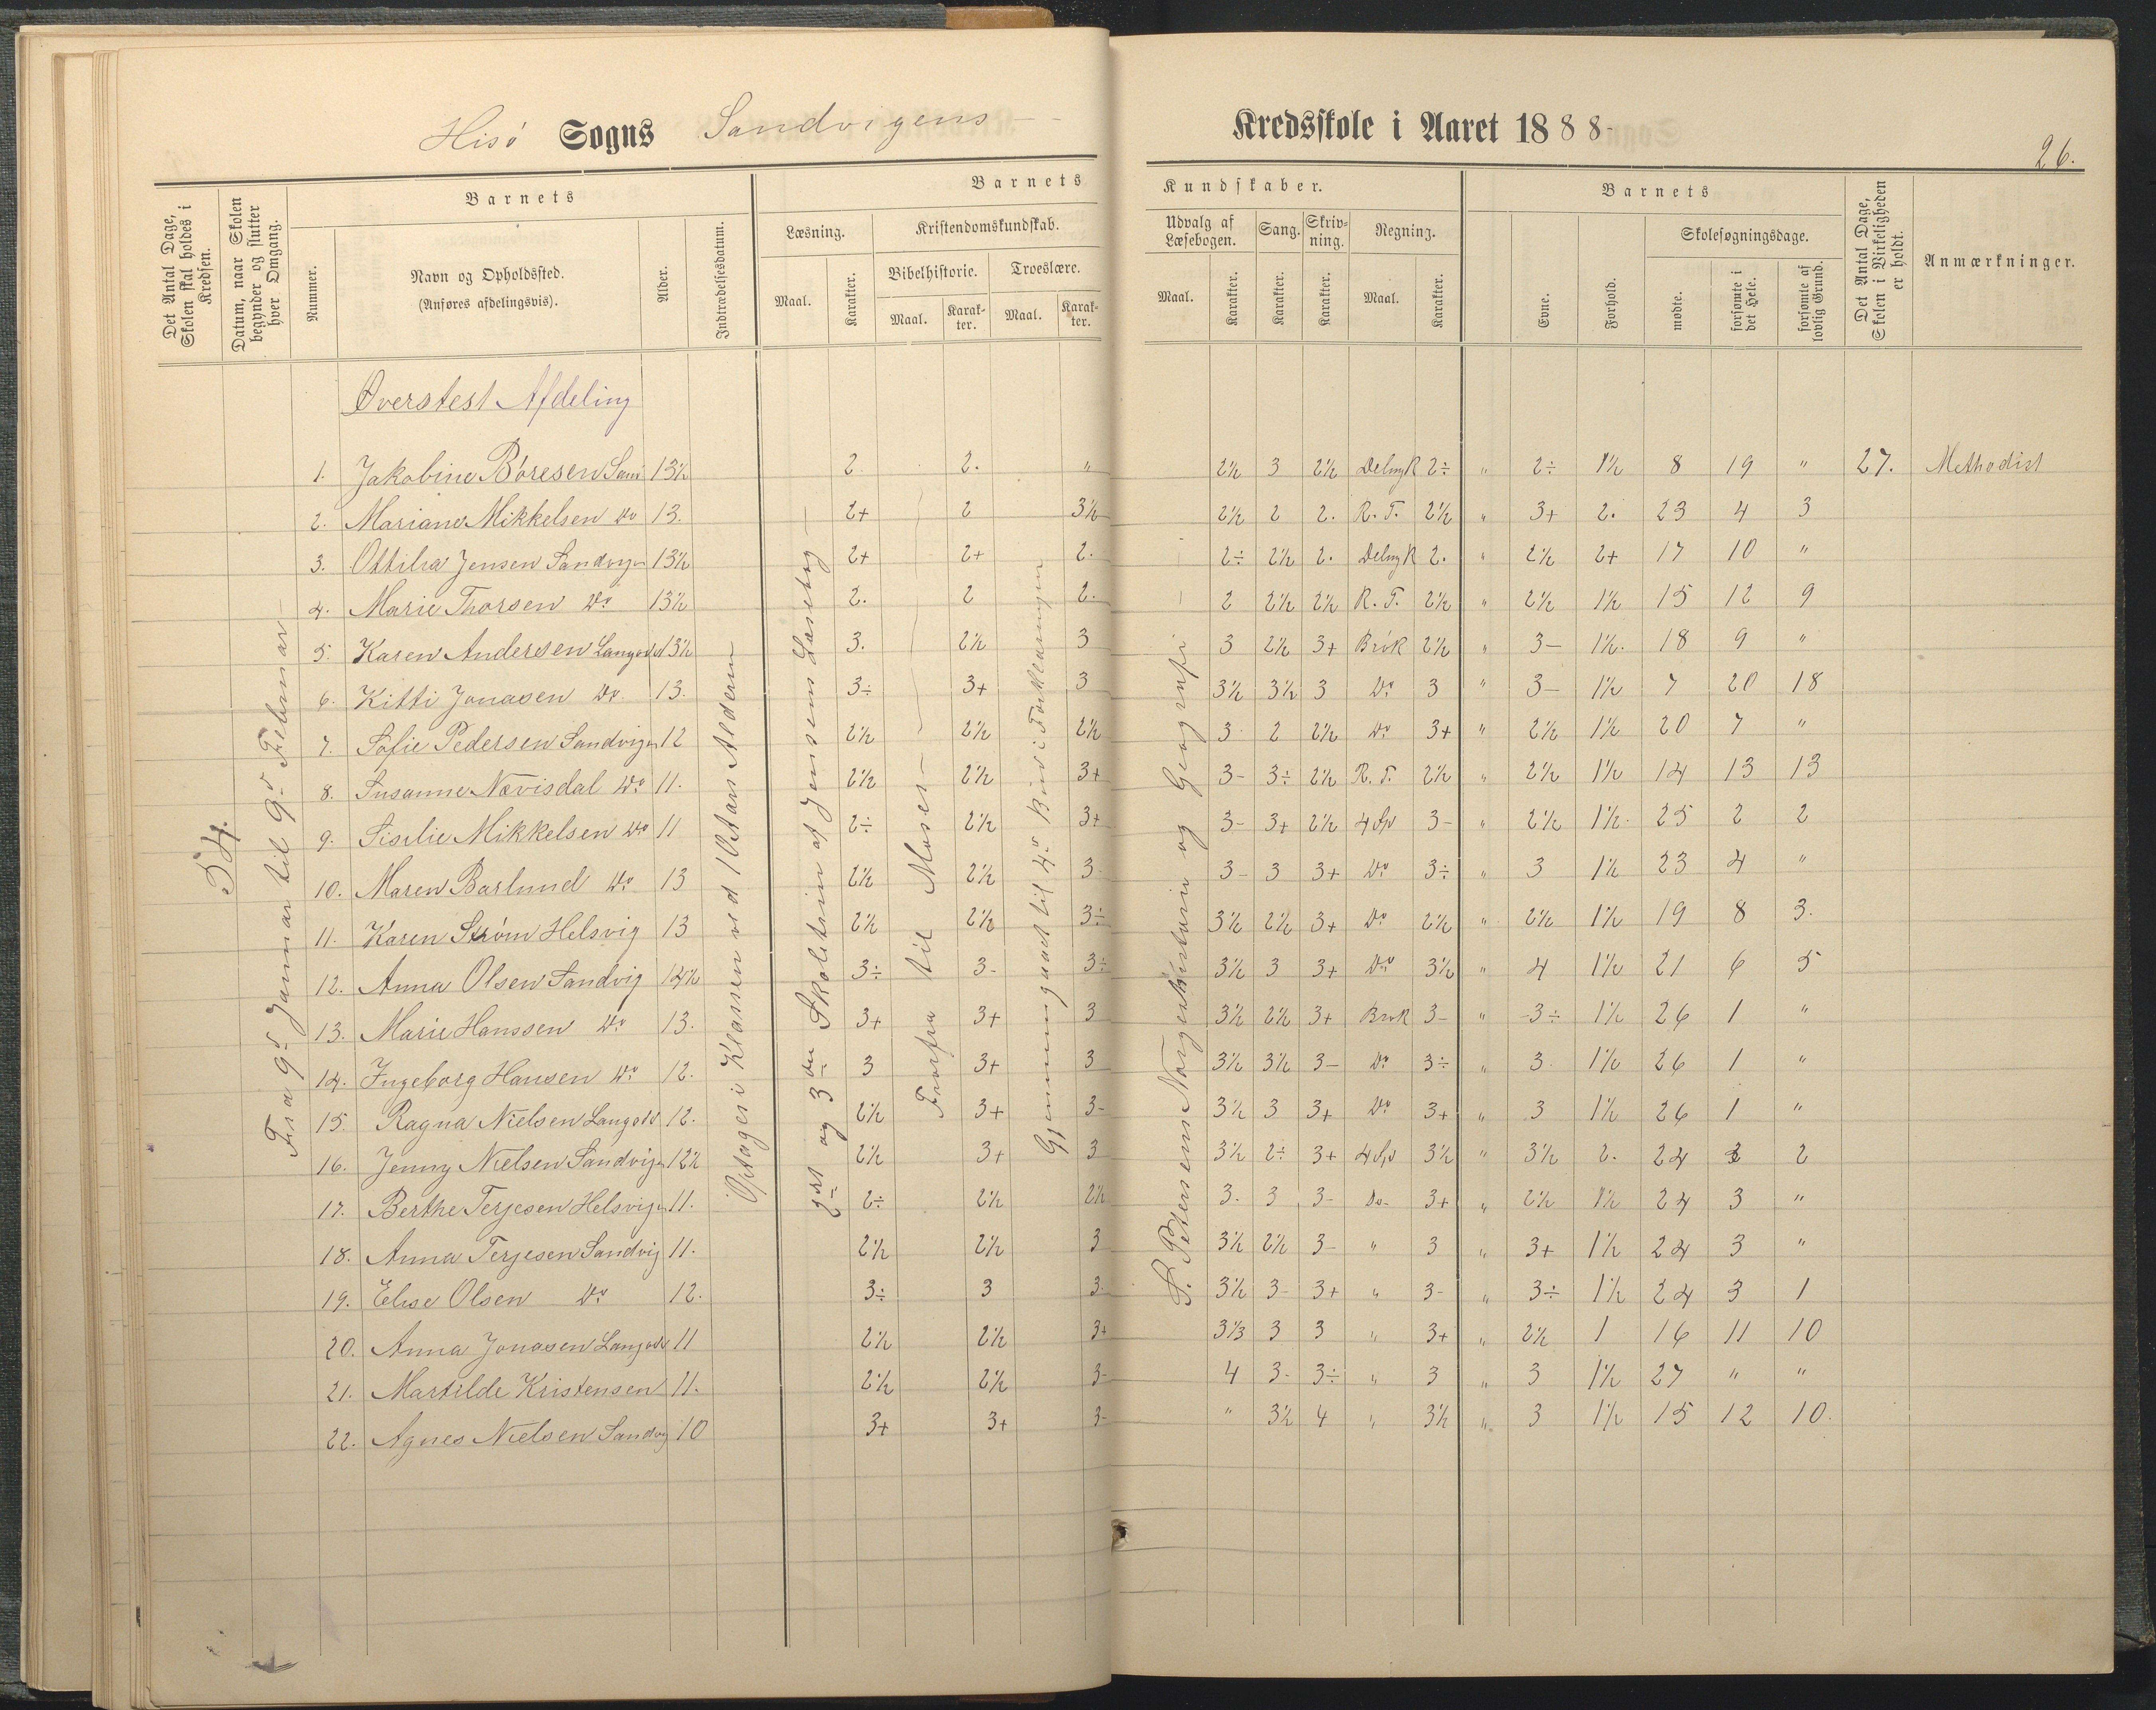 Hisø Sogns Sandvigens Kredsskole i Aaret 1888-
26.
Det Antal Dage, Skolen skal holdes i Kredsen.
Datum, naar Skolen begynder og slutter hver Omgang.
Nummer.
Barnets
Navn og Opholdssted.
(Anføres afdelingsvis).
Alder.
Indtrædelsesdatum.
Barnets Kundskaber.
Læsning.
Maal.
Karakter.
Kristendomskundskab.
Bibelhistorie.
Maal.
Karakter.
Troeslære.
Maal.
Karakter.
Udvalg af Læsebogen.
Maal.
Karakter.
Sang.
Karakter.
Skrivning.
Karakter.
Regning.
Maal.
Karakter.
Barnets
Evne.
Forhold.
Skolesøgningsdage.
mødte.
forsømte i det Hele.
forsømte af lovlig Grund.
Det Antal Dage, Skolen i Virkeligheden er holdt.
Anmærkninger.
Øverstest Afdeling
54.
Fra 9d Januar til 9d Februar
Optages i Klassen ved 10 Aars Alderen
2det og 3die Skoletrin af Jensens Læsebog
Forfra til Moses
Gjennemgaaet til 4d Bud i Forklaringen
S. Petersens Norgeshistorie og Geografi
1. Jakobine Børesen Sand 13½ 2 2. " 2½ 3 2½ Deling R 2÷ " 2÷ 1½ 8 19 " 27. Methodist
2. Mariane Mikkelsen Do 13. 2+ 2 3½ 2½ 2 2. R. T. 2½ " 3+ 2. 23 4 3
3. Ottilia Jensen Sandvigen 13½ 2+ 2+ 2. 2÷ 2½ 2. Deling R 2. " 2½ 2+ 17 10 "
4. Marie Thorsen Do 13½ 2. 2 2. 2 2½ 2½ R. T. 2½ " 2½ 1½ 15 12 9
5. Karen Andersen Langods 13½ 3. 2½ 3 3 2½ 3+ Brøk 2½ " 3- 1½. 18 9 "
6. Kitti Jonasen Do. 13. 3÷ 3+ 3 3½ 3½ 3 Do 3 " 3- 1½ 7 20 18
7. Sofie Pedersen Sandvigen 12 2½ 2½ 2½ 3 2 2½ Do 3+ " 2½ 1½ 20 7 "
8. Susanne Nævisdal Do 11. 2½ 2½ 3+ 3- 3÷ 2½ R. T. 2½ " 2½ 1½ 14 13 13
9. Sisilie Mikkelsen Do 11 2÷ 2½ 3+ 3- 3+ 2½ 4 Sp 3- " 2½ 1½. 25 2 2
10. Maren Barlund Do 13 2½ 2½ 3 3- 3 3+ Do 3÷ " 3 1½ 23 4 "
11. Karen Strøm Helsvig 13 2½ 2½ 3÷ 3½ 2½ 3+ Do 2½ " 2½ 1½ 19 8 3.
12. Anna Olsen Sandvig 14½ 3÷ 3- 3÷ 3½ 3 3+ Do 3½ " 4 1½ 21 6 5
13. Marie Hanssen Do 13. 3+ 3+ 3 3½ 2½ 3+ Brøk 3- " 3÷ 1½ 26 1 "
14. Ingeborg Hansen Do 12. 3 3+ 3 3½ 3½ 3- Do 3÷ " 3 1½ 26 1 "
15. Ragna Nielsen Langods 12. 2½ 3+ 3- 3½ 3 3+ Do 3+ " 3 1½ 26 1 "
16. Jenny Nielsen Sandvigen 12½ 2½ 3+ 3 3½ 2÷ 3+ 4 Sp 3½ " 3½ 2. 24 3 2
17. Berthe Terjesen Helsvigen 11. 2÷ 2½ 2½ 3. 3 3- Do- 3+ " 2½ 1½ 24 3 "
18. Anna Terjesen Sandvig 11. 2½ 2½ 3 3½ 2½ 3- " 3 " 3+ 1½ 24 3 "
19. Elise Olsen Do 12. 3÷ 3 3. 3½ 3- 3+ " 3- " 3÷ 1½ 24 3 1
20. Anna Jonasen Langods 11 2½ 2½ 3+ 3⅓ 3 3 " 3+ " 2½ 1 16 11 10
21. Martilde Kristensen 11. 2½ 2½ 3- 4 3- 3÷ " 3 " 3 1½ 27 " "
22. Agnes Nielsen Sandvig 10 3+ 3+ 3- " 3½ 4 " 3½ " 3 1½ 15 12 10.